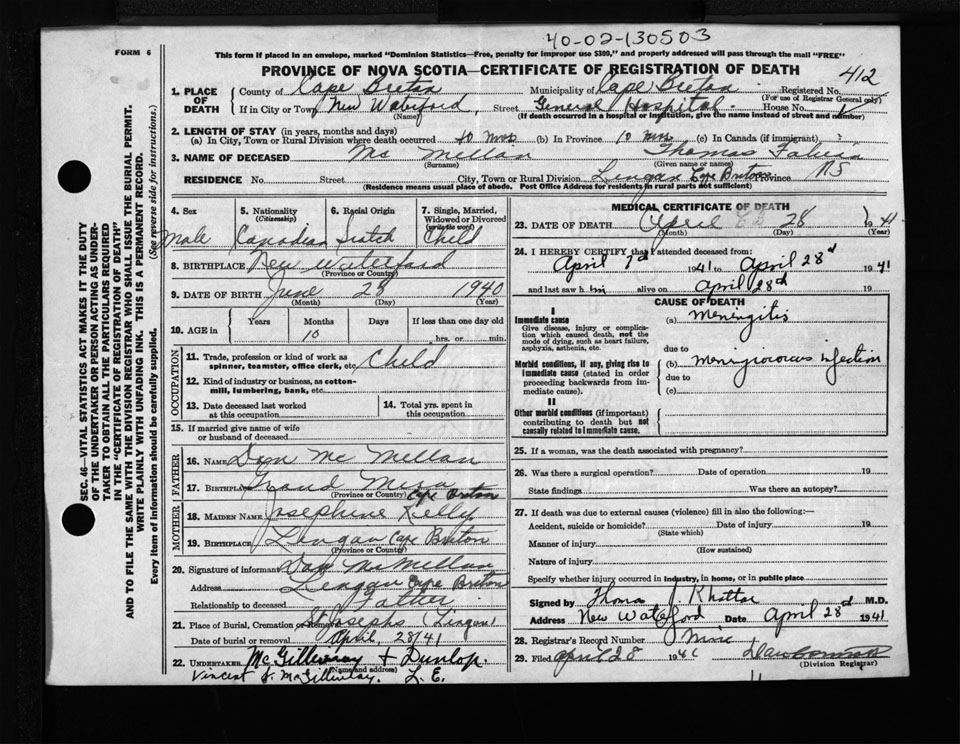 40-02-130503
FORM 6
This form if placed in an envelope, marked "Dominion Statistics—Free, penalty for improper use $300," and properly addressed will pass through the mail "FREE"
PROVINCE OF NOVA SCOTIA—CERTIFICATE OF REGISTRATION OF DEATH
412
1. PLACE OF DEATH
County of Cape Breton Municipality of Cape Breton Registered No.
(For use of Registrar General only)
If in City or Town New Waterford Street General Hospital House No.
(Name) (If death occurred in a hospital or institution, give the name instead of street and number)
2. LENGTH OF STAY (in years, months and days)
(a) In City, Town or Rural Division where death occurred 10 mos (b) In Province 10 mos (c) In Canada (if immigrant)
3. NAME OF DECEASED Mc Millan Thomas
(Surname) (Given name or names)
RESIDENCE No. Street City, Town or Rural Division Lingan Cape Breton Province NS
(Residence means usual place of abode. Post Office Address for residents in rural parts not sufficient)
4. Sex Male
5. Nationality (Citizenship) Canadian
6. Racial Origin Scotch
7. Single, Married, Widowed or Divorced (write the word) Child
8. BIRTHPLACE New Waterford
(Province or Country)
9. DATE OF BIRTH June 28 1940
(Month) (Day) (Year)
10. AGE in Years Months 10 Days If less than one day old hrs. or min.
OCCUPATION
11. Trade, profession or kind of work as spinner, teamster, office clerk, etc. Child
12. Kind of industry or business, as cotton-mill, lumbering, bank, etc.
13. Date deceased last worked at this occupation
14. Total yrs. spent in this occupation
15. If married give name of wife or husband of deceased
FATHER
16. NAME Dan Mc Millan
17. BIRTHPLACE Grand Mira Cape Breton
(Province or Country)
MOTHER
18. MAIDEN NAME Josephine Kelly
19. BIRTHPLACE Lingan Cape Breton
(Province or Country)
20. Signature of informant Dan McMillan
Address Lingan Cape Breton
Relationship to deceased Father
21. Place of Burial, Cremation or Removal St Josephs (Lingan)
Date of burial or removal April 28/41
22. UNDERTAKER McGillivray & Dunlop
(Name and address)
Vincent J. McGillivray. L. E.
MEDICAL CERTIFICATE OF DEATH
23. DATE OF DEATH April 28 1941
(Month) (Day) (Year)
24. I HEREBY CERTIFY that I attended deceased from:
April 7th 1941 to April 28th 1941
and last saw h im alive on April 28th 19
CAUSE OF DEATH
I
Immediate cause
Give disease, injury or complication which caused death, not the mode of dying, such as heart failure, asphyxia, asthenia, etc.
(a) Meningitis
due to
Morbid conditions, if any, giving rise to immediate cause (stated in order proceeding backwards from immediate cause).
(b) Meningococcus infection
due to
(c)
II
Other morbid conditions (if important) contributing to death but not causally related to immediate cause.
25. If a woman, was the death associated with pregnancy?
26. Was there a surgical operation? Date of operation 19
State findings Was there an autopsy?
27. If death was due to external causes (violence) fill in also the following:—
Accident, suicide or homicide? Date of injury 19
(State which)
Manner of injury
(How sustained)
Nature of injury
Specify whether injury occurred in industry, in home, or in public place
Signed by Thomas J. Khattar M.D.
Address New Waterford Date April 28th 1941
28. Registrar's Record Number Nine
29. Filed April 28 1941
(Division Registrar)
SEC. 46—VITAL STATISTICS ACT MAKES IT THE DUTY
OF THE UNDERTAKER OR PERSON ACTING AS UNDER-
TAKER TO OBTAIN ALL THE PARTICULARS REQUIRED
IN THE "CERTIFICATE OF REGISTRATION OF DEATH"
AND TO FILE THE SAME WITH THE DIVISION REGISTRAR WHO SHALL ISSUE THE BURIAL PERMIT.
WRITE PLAINLY WITH UNFADING INK. THIS IS A PERMANENT RECORD.
Every item of information should be carefully supplied. (See reverse side for instructions.)